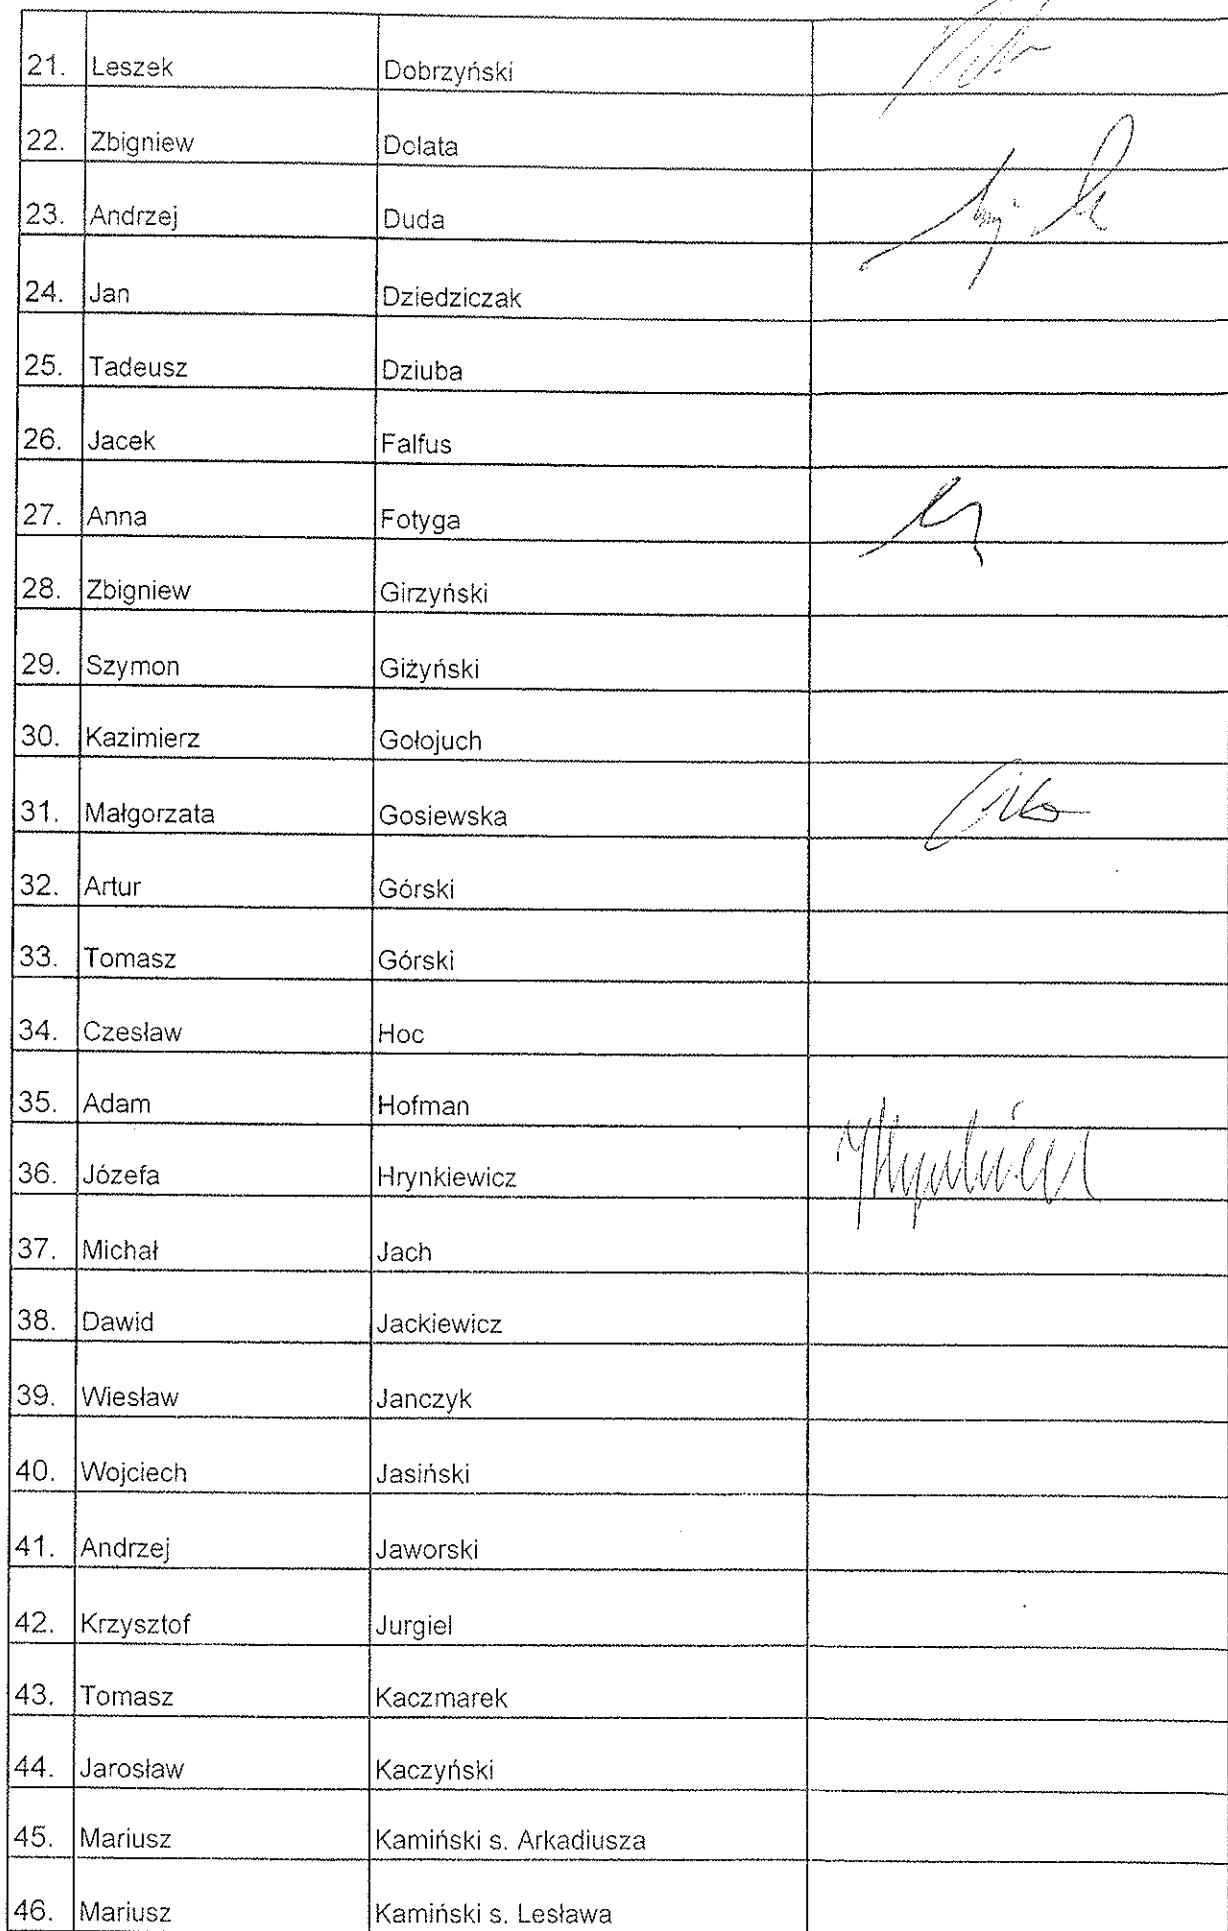 21. Leszek Dobrzyński
22. Zbigniew Dolata
23. Andrzej Duda
24. Jan Dziedziczak
25. Tadeusz Dziuba
26. Jacek Falfus
27. Anna Fotyga
28. Zbigniew Girzyński
29. Szymon Giżyński
30. Kazimierz Gołojuch
31. Małgorzata Gosiewska
32. Artur Górski
33. Tomasz Górski
34. Czesław Hoc
35. Adam Hofman
36. Józefa Hrynkiewicz
37. Michał Jach
38. Dawid Jackiewicz
39. Wiesław Janczyk
40. Wojciech Jasiński
41. Andrzej Jaworski
42. Krzysztof Jurgiel
43. Tomasz Kaczmarek
44. Jarosław Kaczyński
45. Mariusz Kamiński s. Arkadiusza
46. Mariusz Kamiński s. Lesława